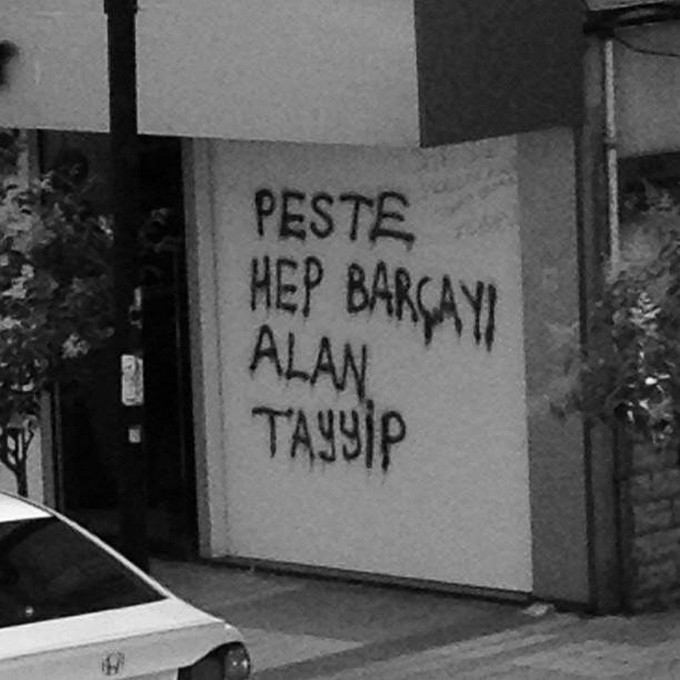 PESTE
HEP BARÇAYI
ALAN
TAYYİP